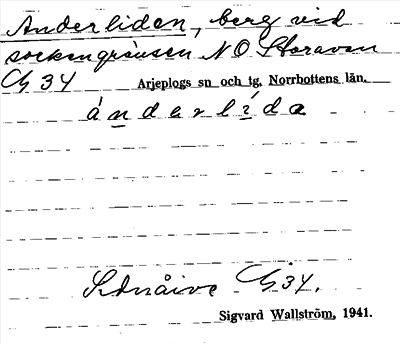 Anderliden, berg vid
sockengränsen NO Storavan
Cg 34 Arjeplogs sn och tg. Norrbottens län.
ánderlída
Cg 34.
Sigvard Wallström, 1941.